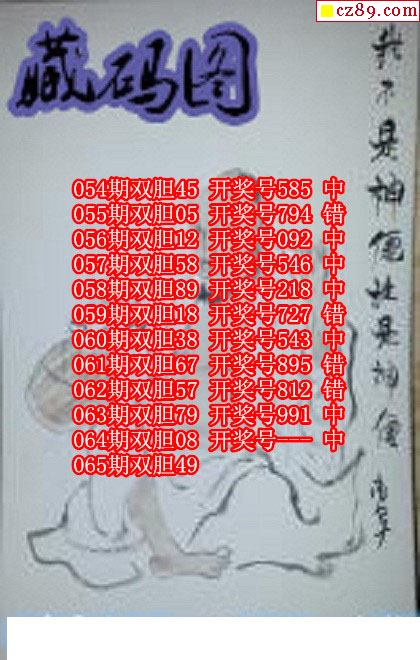 cz89.com
藏码图
054期双胆45 开奖号585 中
055期双胆05 开奖号794 错
056期双胆12 开奖号092 中
057期双胆58 开奖号546 中
058期双胆89 开奖号218 中
059期双胆18 开奖号727 错
060期双胆38 开奖号543 中
061期双胆67 开奖号895 错
062期双胆57 开奖号812 错
063期双胆79 开奖号991 中
064期双胆08 开奖号--- 中
065期双胆49
我不是神僊谁是神僊